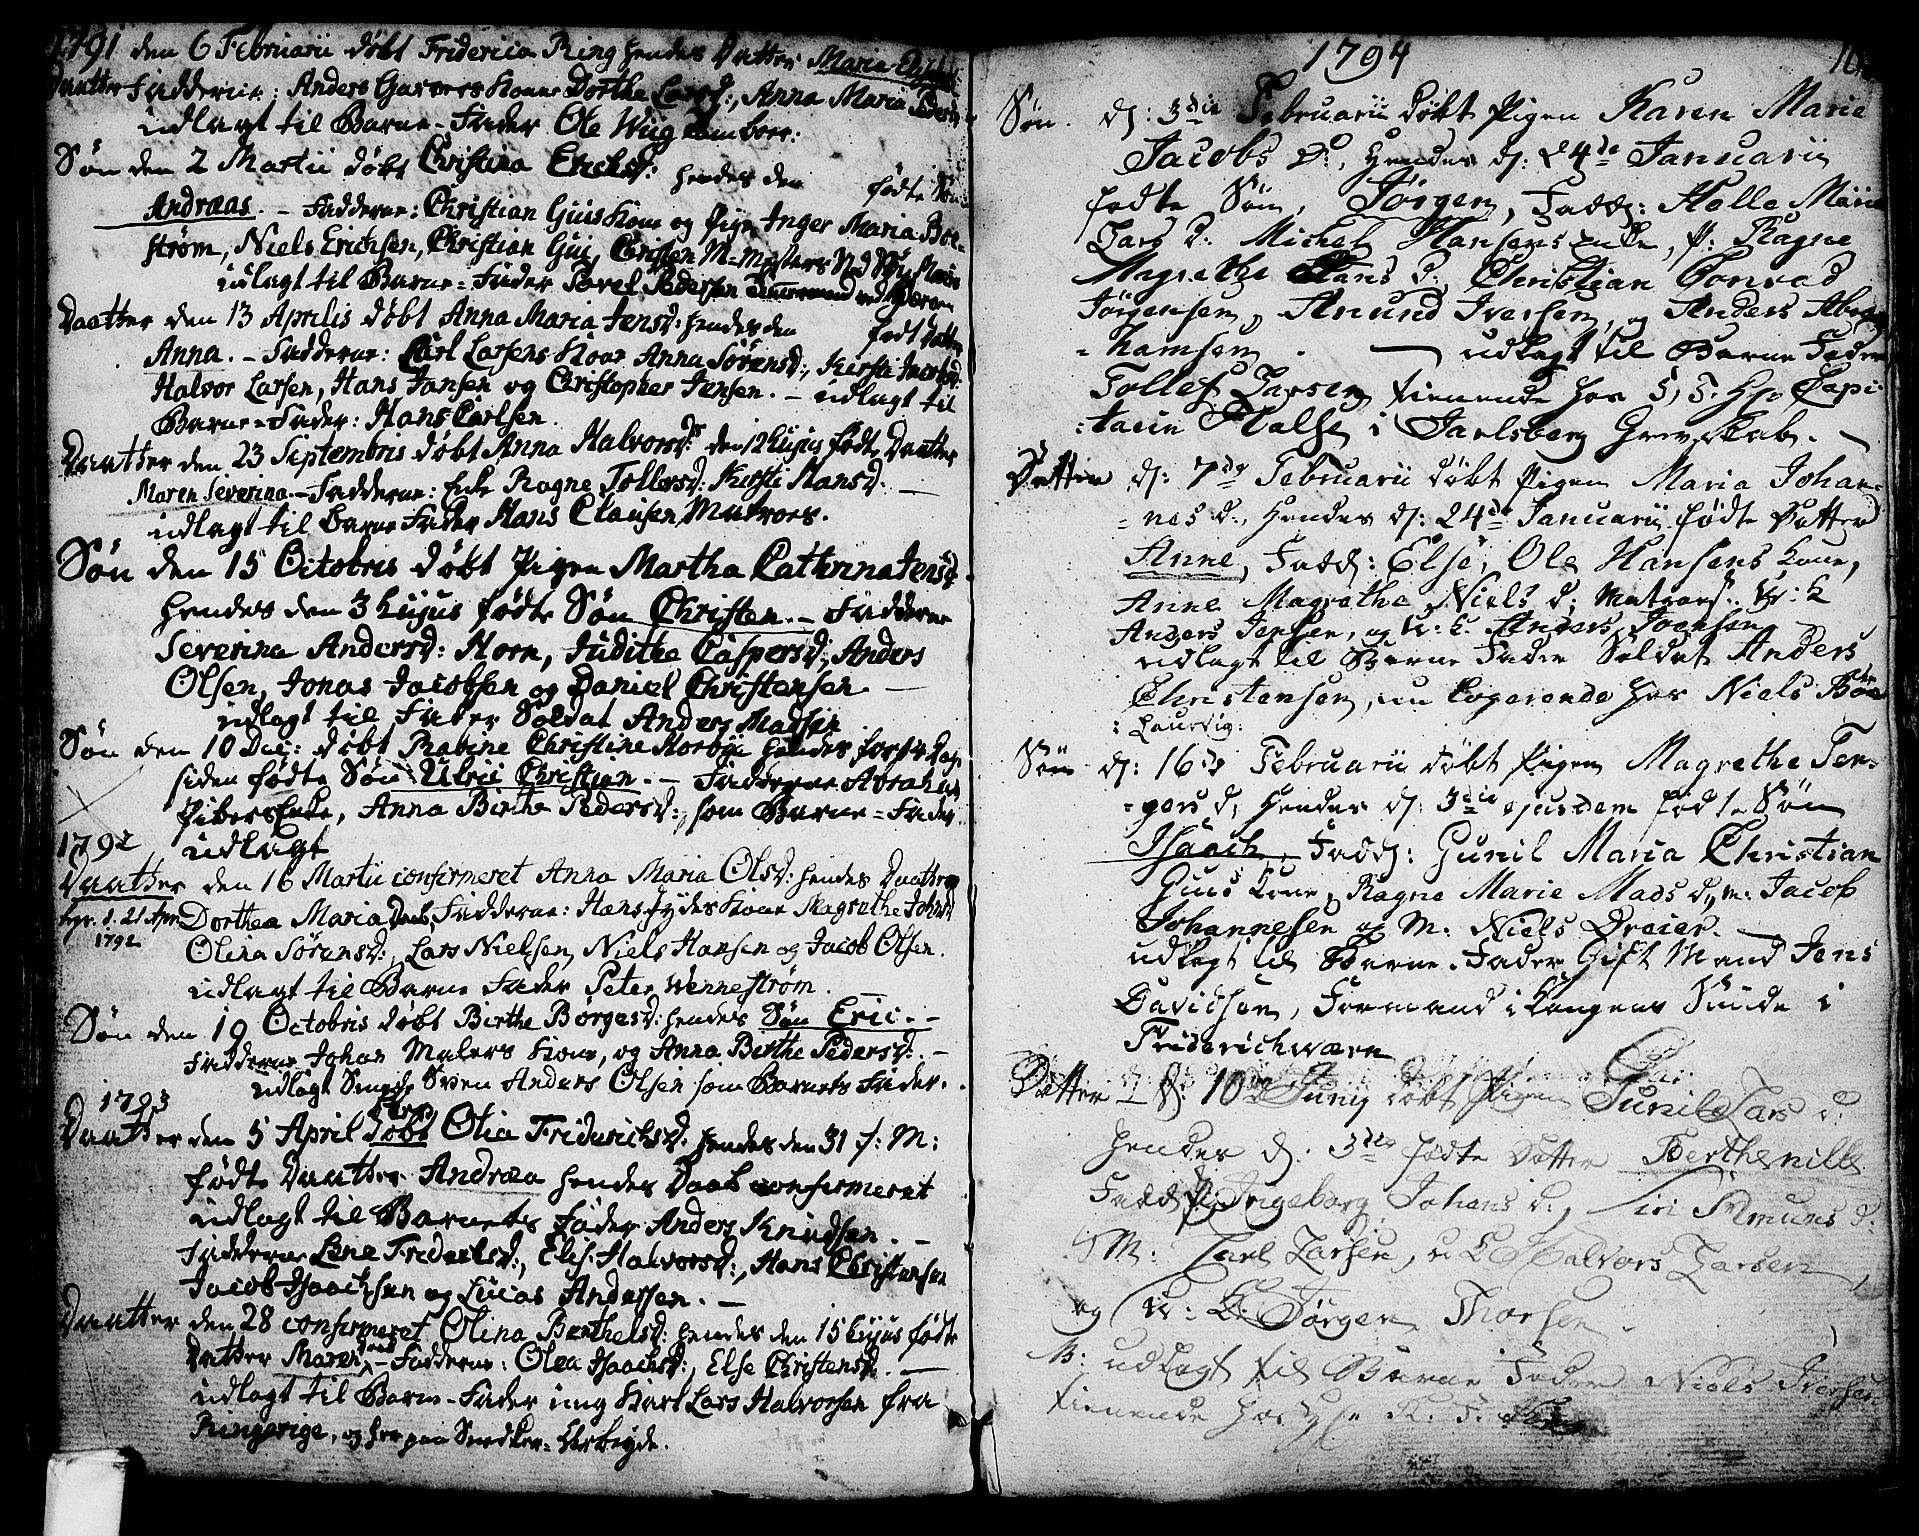 1791 den 6 Februarii døbt Friderica Ring hendes Datter Maria
Daatter Fadderne: Anders Garvers Kone Dorthe Larsd:, Anna Maria
udlagt til Barne-Fader Ole Wiig
Søn den 2 Martii døbt Christina Ericksd: hendes den født Søn
Andræas. - Fadderne: Christian Guis Kone og Pige Inger Maria Boe-
strøm, Niels Erichsen, Christian Gui,
udlagt til Barne-Fader Povel Pedersen
Daatter den 13 Aprilis døbt Anna Maria Jensd: hendes den født Datter
Anna. - Fadderne: Carl Larsens Kone Anna Sørensd:, Kirsti
Halvor Larsen, Hans Jansen og Christopher Jensen. - udlagt til
Barne-Fader: Hans Carlsen.
Daatter den 23 Septembris døbt Anna Halvorsd: den 12 hujus fødte Daatter
Maren Severina. - Fadderne: Enke Ragne Tollersd: Kirsti Hansd. -
udlagt til Barne Fader Hans Clausen Matroes.
Søn den 15 Octobris døbt Pigen Martha Cathrina Jensd.
hendes den 3 hujus fødte Søn Christen. - Fadderne
Severina Andersd: Horn, Judithe Caspersd:, Anders
Olsen, Jonas Jacobsen og Daniel Christensen. -
udlagt til Fader Soldat Anders Madsen
Søn den 10 Dec: døbt Christine hendes for 14 Dage
siden fødte Søn Ulric Christian. - Fadderne Abraham
Enke, Anna Birthe Pedersd:, som Barne=Fader
1792 udlagt
Daatter den 16 Martii confirmeret Anna Maria Olsd: hendes Daatter
d. 21 Apr. Dorthea Maria Daab, Fadderne: Hans Jydes Kone Magrethe
1792 Olina Sørensd:, Lars Nielsen, Niels Hansen og Jacob Olsen.
udlagt til Barne Fader Peter Wennestrøm.
Søn den 19 Octobris døbt Birthe Børgesd: hendes Søn Eric. -
Fadderne Johan Malers Kone, og Anna Birthe Pedersd:. -
udlagt Smede Sven Anders Olsen som Barnets Fader.
1793
Daatter den 5 April døbt Olia Friderichsd: hendes den 31 f: M:
fødte Daatter Andræa hendes Daab confirmeret
udlagt til Barnets Fader Anders Knudsen. -
Fadderne Lene, Elis. Halvorsd:, Hans Christensen
Jacob Isaachsen og Lucas Andersen. -
Daatter den 28 confirmeret Olina Barthelsd: hendes den 15 hujus fødte
Datter Maren Daab - Fadderne: Olea Isaachsd:, Else Christensd. -
udlagt til Barne-Fader ung Karl Lars Halvorsen fra
Ringerige, og her paa Snedker=Arbeyde.
1794
Søn. d: 3die Februarii døbt Pigen Karen Marie
Jacobs D:, Hendes d: 24de Januarii
fødte Søn, Jørgen, Fadd: Helle Marie
Lars D: Michel Hansens Enke, P: Ragne
Magrethe Hans D, Christian Conrad
Jørgensen, Amund Iversen, og Anders Abra-
-hamsen. - udlagt til Barne Fader
Tollef Larsen tienende hos S. T. Hr. Capi-
-tain Halse i Jarlsberg Grevskab. -
Datter d: 7de Februarii døbt Pigen Maria Johan-
-nes D:, Hendes d: 24de Januarii fødte Datter
Anne, Fadd: Else, Ole Hansens Kone,
Anne Magrethe Niels D; Matros
Anders Jensen, og U: K. Anders Joensen
udlagt til Barne Fader Soldat Anders
Christensen, nu Logerende hos Niels
: Laurvig:
Søn d: 16de Februarii døbt Pigen Magrethe Jen-
-gers D, Hendes d: 3die ejusdem fødte Søn
Isaach, Fadd: Gunil Maria Christian
Guis Kone, Ragne Marie Mads D, M: Jacob
Johannesen og M: Niels Dreier. -
udlagt til Barne-Fader Gift Mand Jens
Davidsen, Formand i Kongens Smide i
Friderichsværn
Datter d: 10de Junij døbt Pigen Gunil Lars D:
Hendes d. 3die fødte Datter Berthe
Fadd: P: Ingeborg Johans D:, Siri Amuns D:
M: Carl Larsen, U K Halvors Larsen,
og U: K: Jørgen Thorsen.
udlagt til Barne Fader Niels Iversen
tienende hos